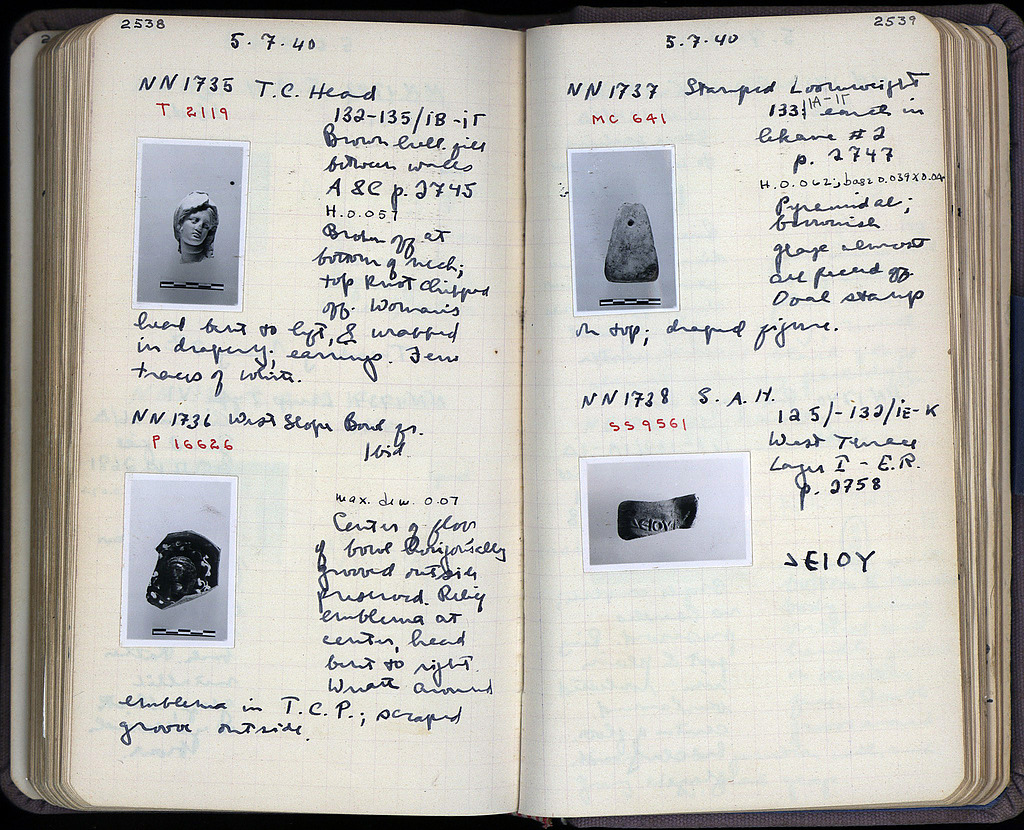 2538
5.7.40
NN1735 T.C. Head
T 2119
132-135/ΙΒ-ΙΓ
Brown bull. fill
between walls
A & C p. 2745
H. 0.057
Broken off at
bottom of neck;
top knot chipped
off. Woman's
head bent to left, & wrapped
in drapery; earrings. Few
traces of white.
NN1736 West Slope Bowl fr.
P 16626
Ibid.
max. dim. 0.07
Center of floor
of bowl
grooved outside
preserved. Relief
emblema at
center, head
bent to right.
Wreath around
emblema in T.C.P.; scraped
groove outside.
2539
5.7.40
NN1737 Stamped Loomweight
MC 641
133/ΙΑ-ΙΓ earth in
lekane #2
p. 2747
H. 0.062; base 0.039 x 0.04
Pyramidal;
brownish
glaze almost
all peeled off
Oval stamp
on top; draped figure.
NN1738 S.A.H.
SS 9561
125/-132/ΙΕ-Κ
West Terrace
Layer I - E.R.
p. 2758
ΣΕΙΟΥ